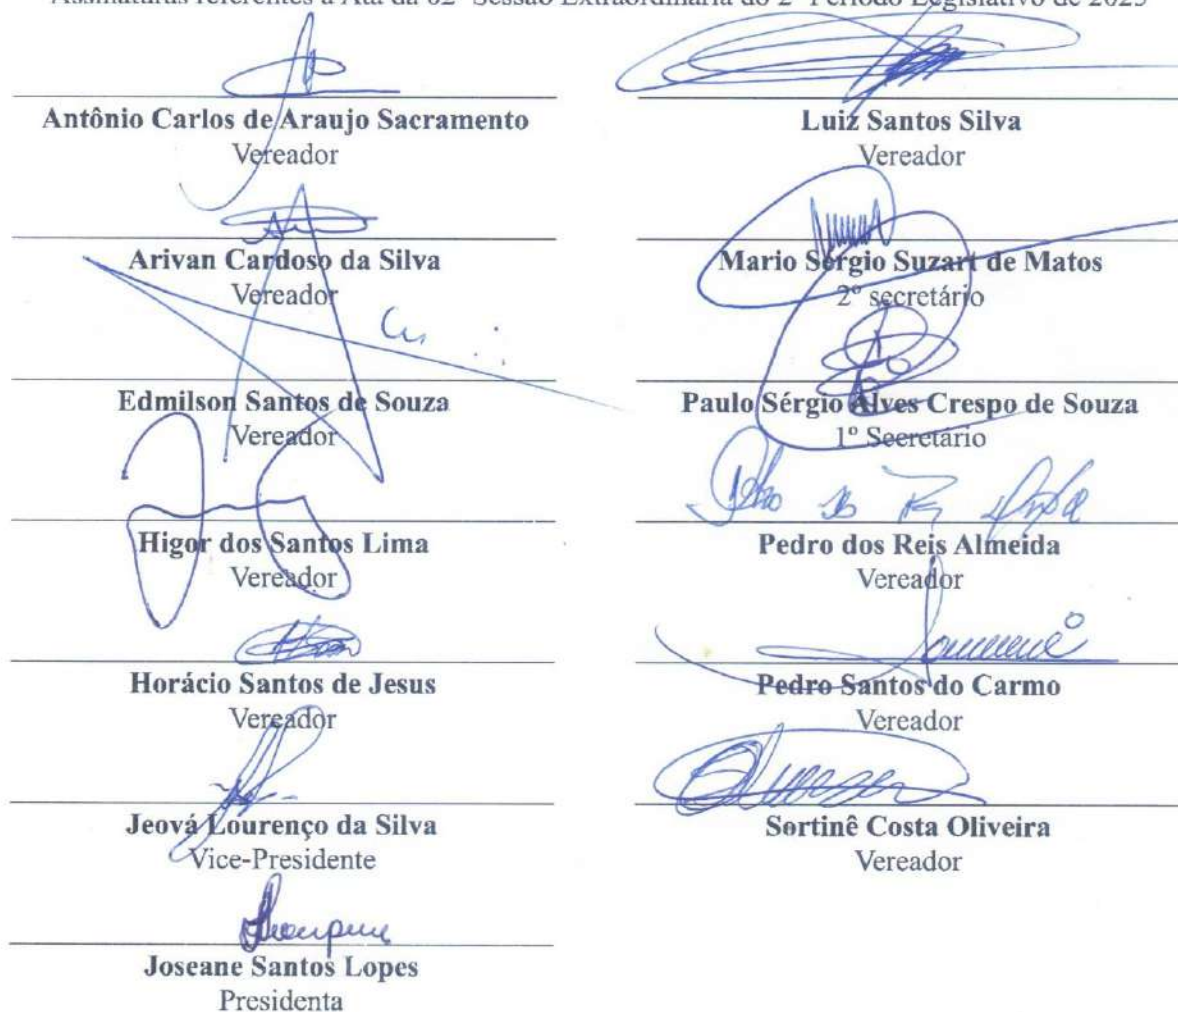 Assinaturas referentes à Ata da 02ª Sessão Extraordinária do 2º Período Legislativo de 2025
Antônio Carlos de Araujo Sacramento
Vereador
Arivan Cardoso da Silva
Vereador
Edmilson Santos de Souza
Vereador
Higor dos Santos Lima
Vereador
Horácio Santos de Jesus
Vereador
Jeová Lourenço da Silva
Vice-Presidente
Joseane Santos Lopes
Presidenta
Luiz Santos Silva
Vereador
Mario Sergio Suzart de Matos
2º secretário
Paulo Sérgio Alves Crespo de Souza
1º Secretário
Pedro dos Reis Almeida
Vereador
Pedro Santos do Carmo
Vereador
Sortinê Costa Oliveira
Vereador